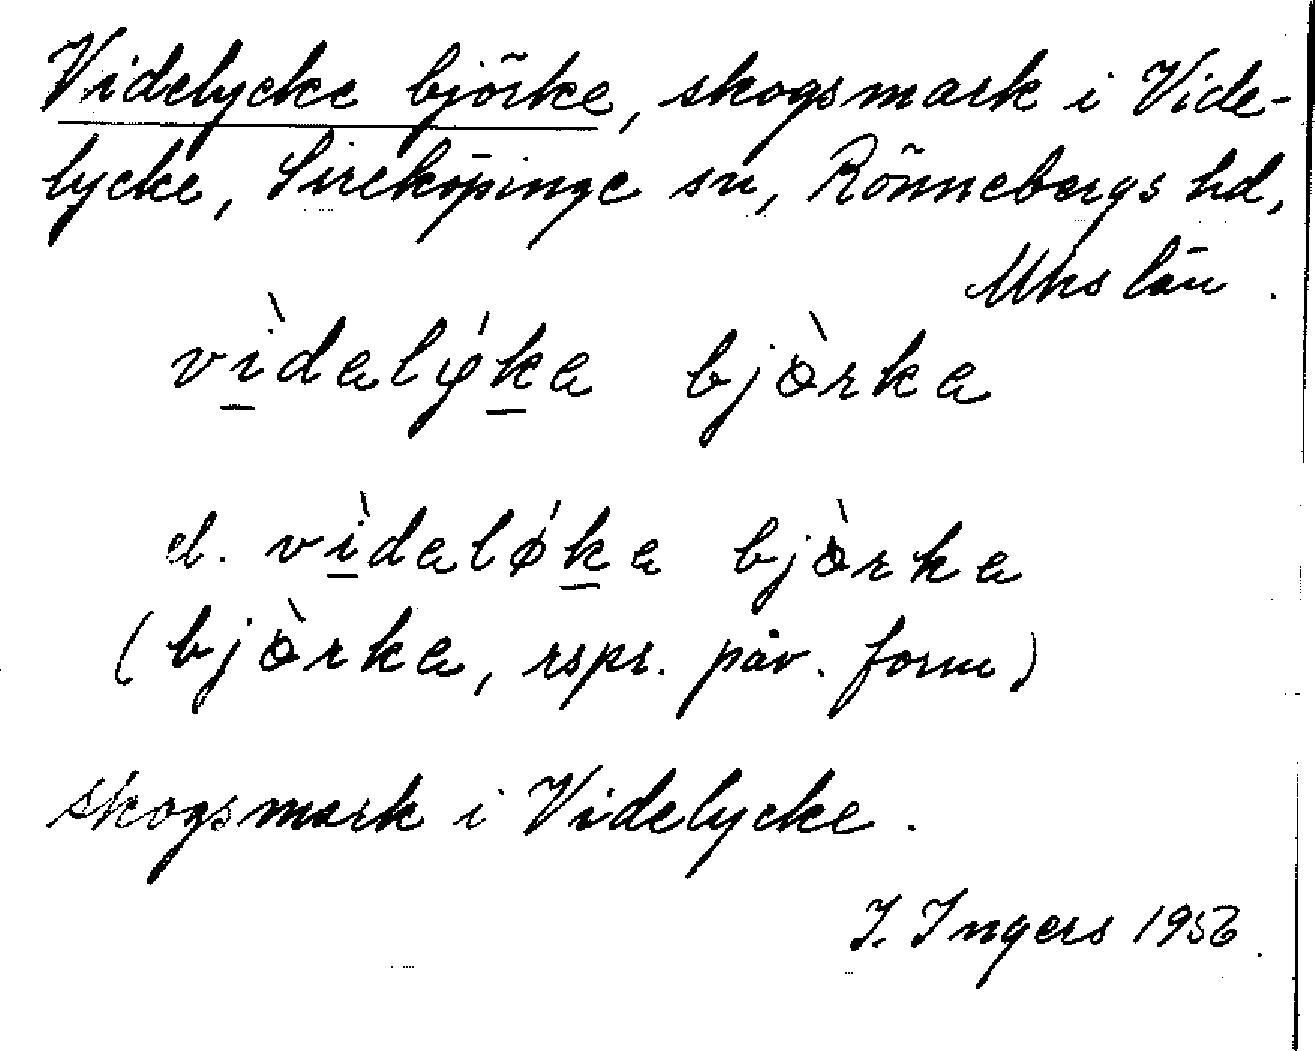 Videlycke björke, skogsmark i Vide-
lycke, Sireköpinge sn, Rönnebergs hd,
Mhs län.
vìdalýka bjòrka
el. vìdalǿka bjòrka
(bjòrka, rspr. påv. form)
skogsmark i Videlycke.
I. Ingers 1956.